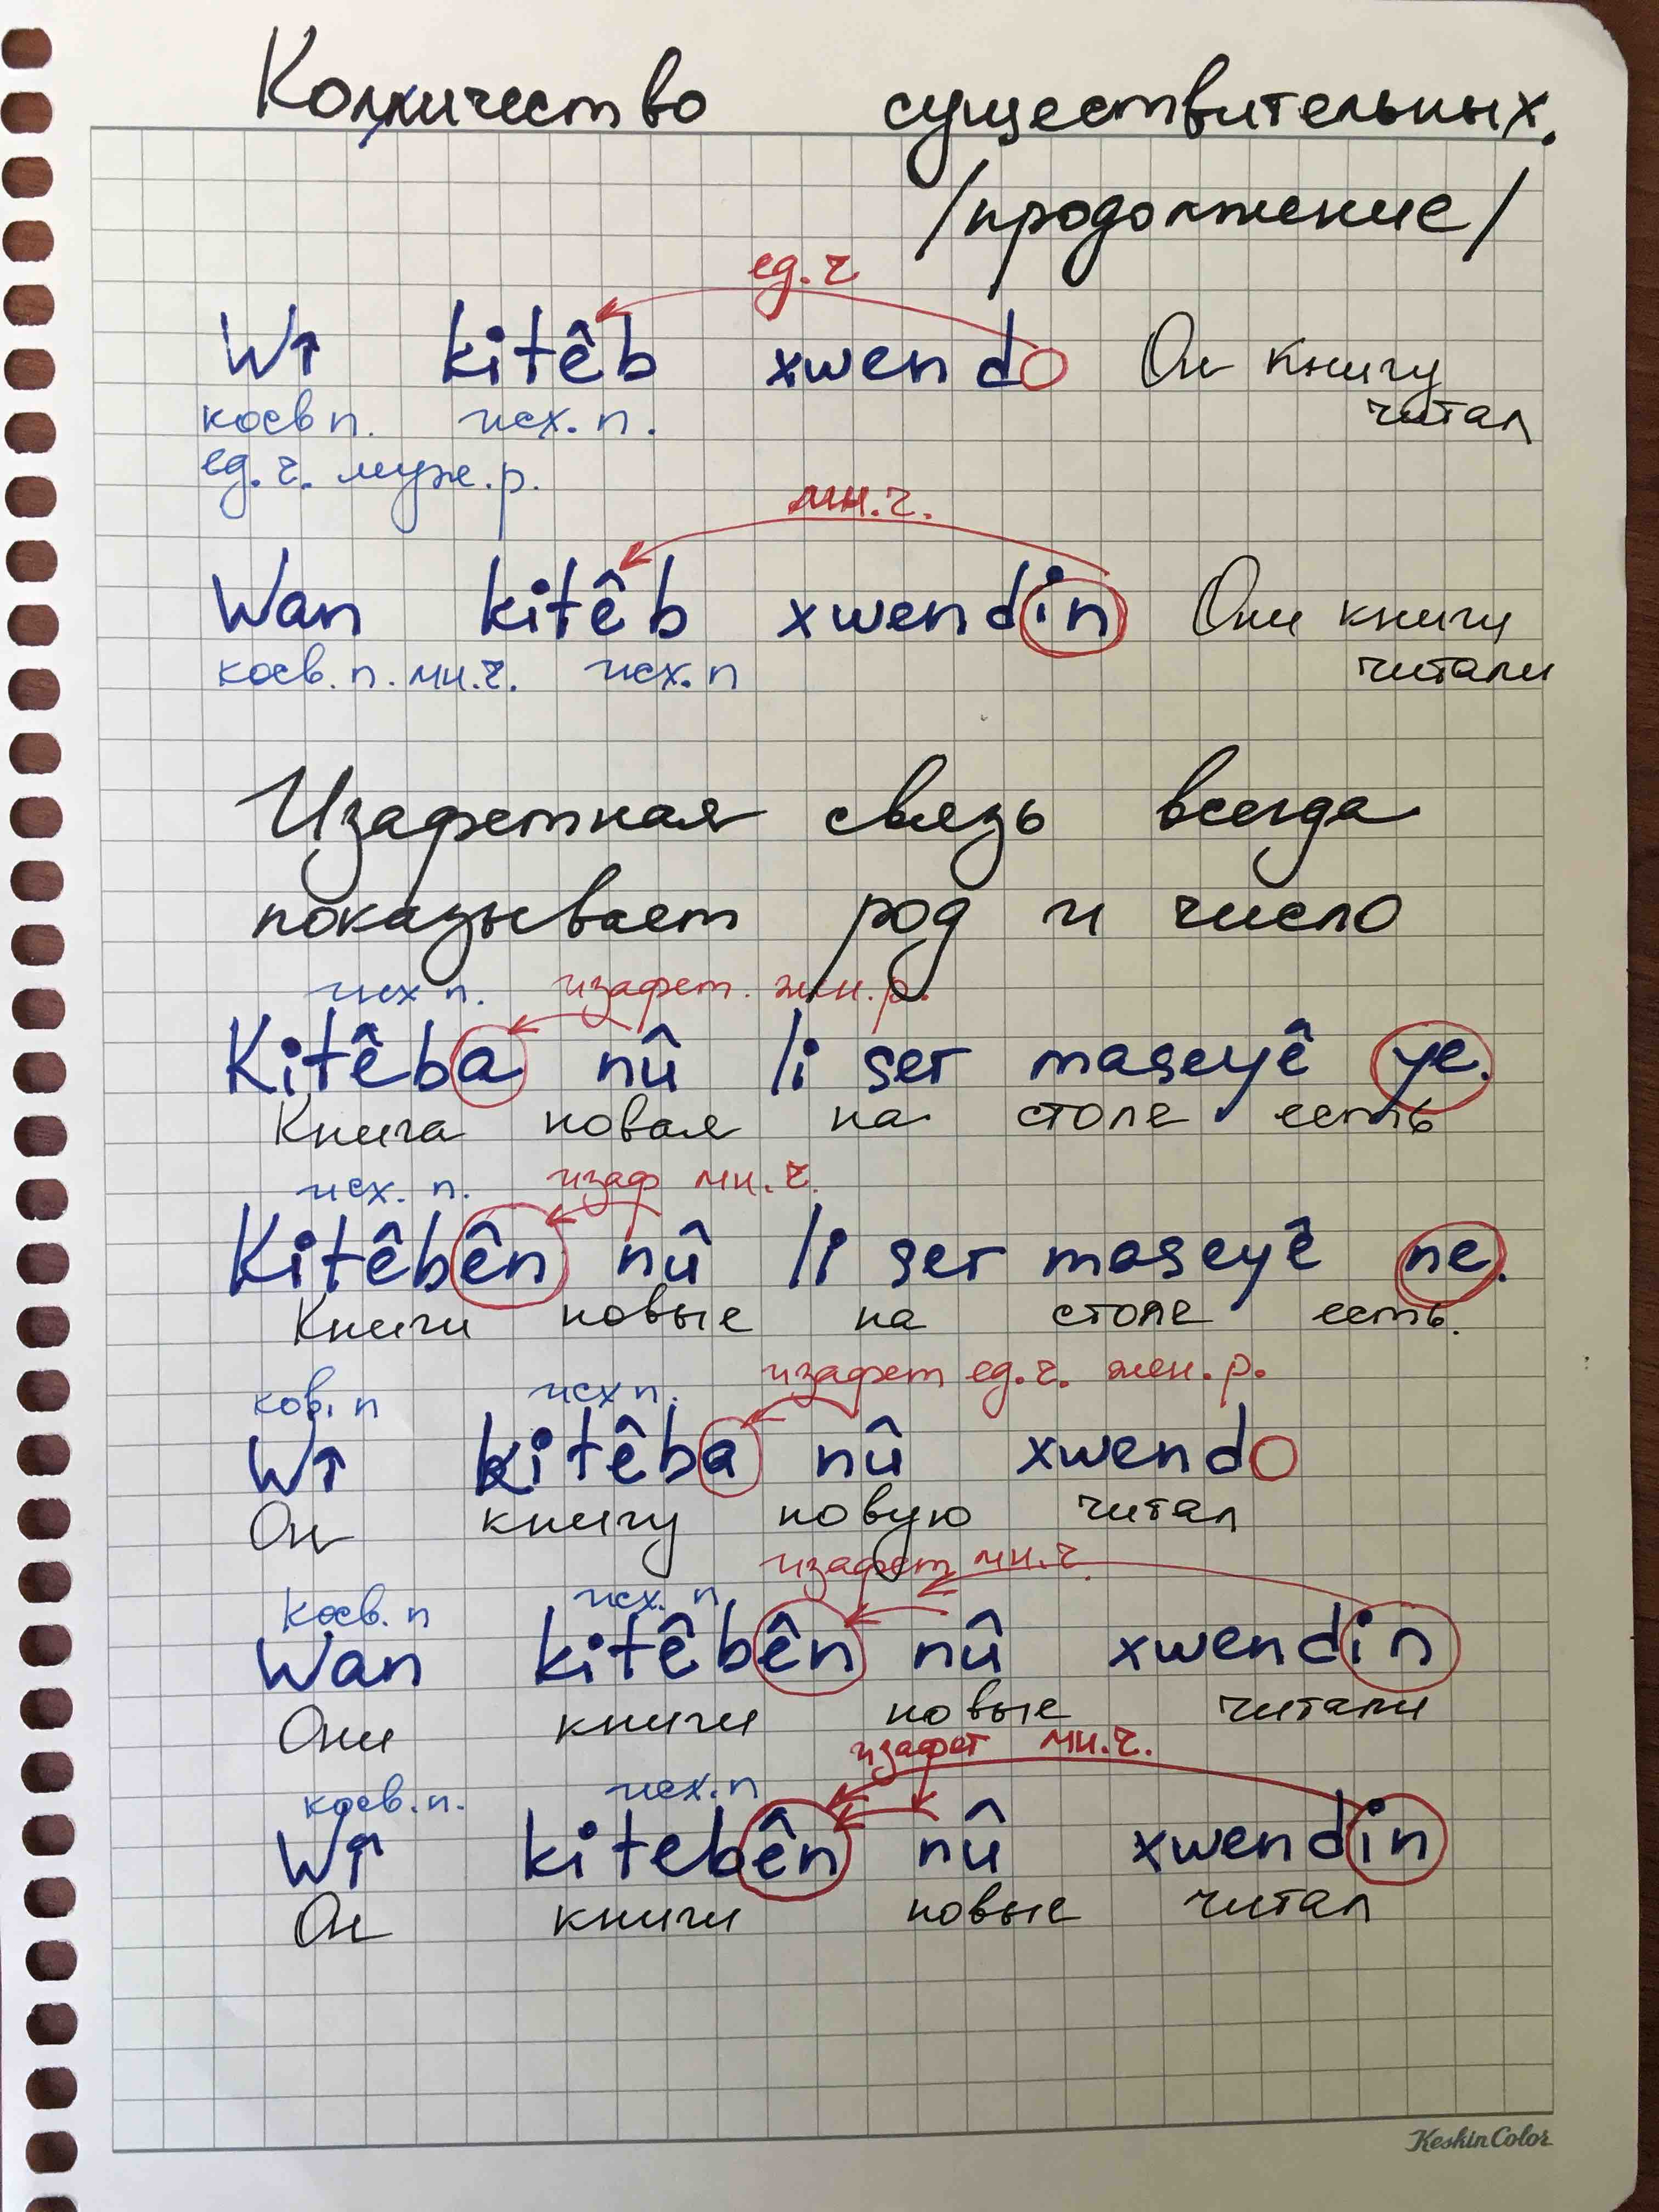 Количество существительных.
/продолжение/
ед.ч
Wî kitêb xwendo Он книгу
читал
косв п. исх. п.
ед.ч. муж.р.
мн.ч.
Wan kitêb xwendin Они книгу
читали
косв. п. мн.ч. исх. п
Изафетная связь всегда
показывает род и число
исх п. изафет. жен.р.
Kitêba nû li ser maseyê ye.
Книга новая на столе есть
исх. п. изаф мн.ч.
Kitêbên nû li ser maseyê ne.
Книги новые на столе есть.
изафет ед.ч. жен.р.
ков. п исх п.
Wî kitêba nû xwendo
Он книгу новую читал
изафет мн.ч.
косв. п исх. п
Wan kitêbên nû xwendin
Они книги новые читали
изафет мн.ч.
косв.п. исх.п
Wî kitebên nû xwendin
Он книги новые читал
KeskinColor